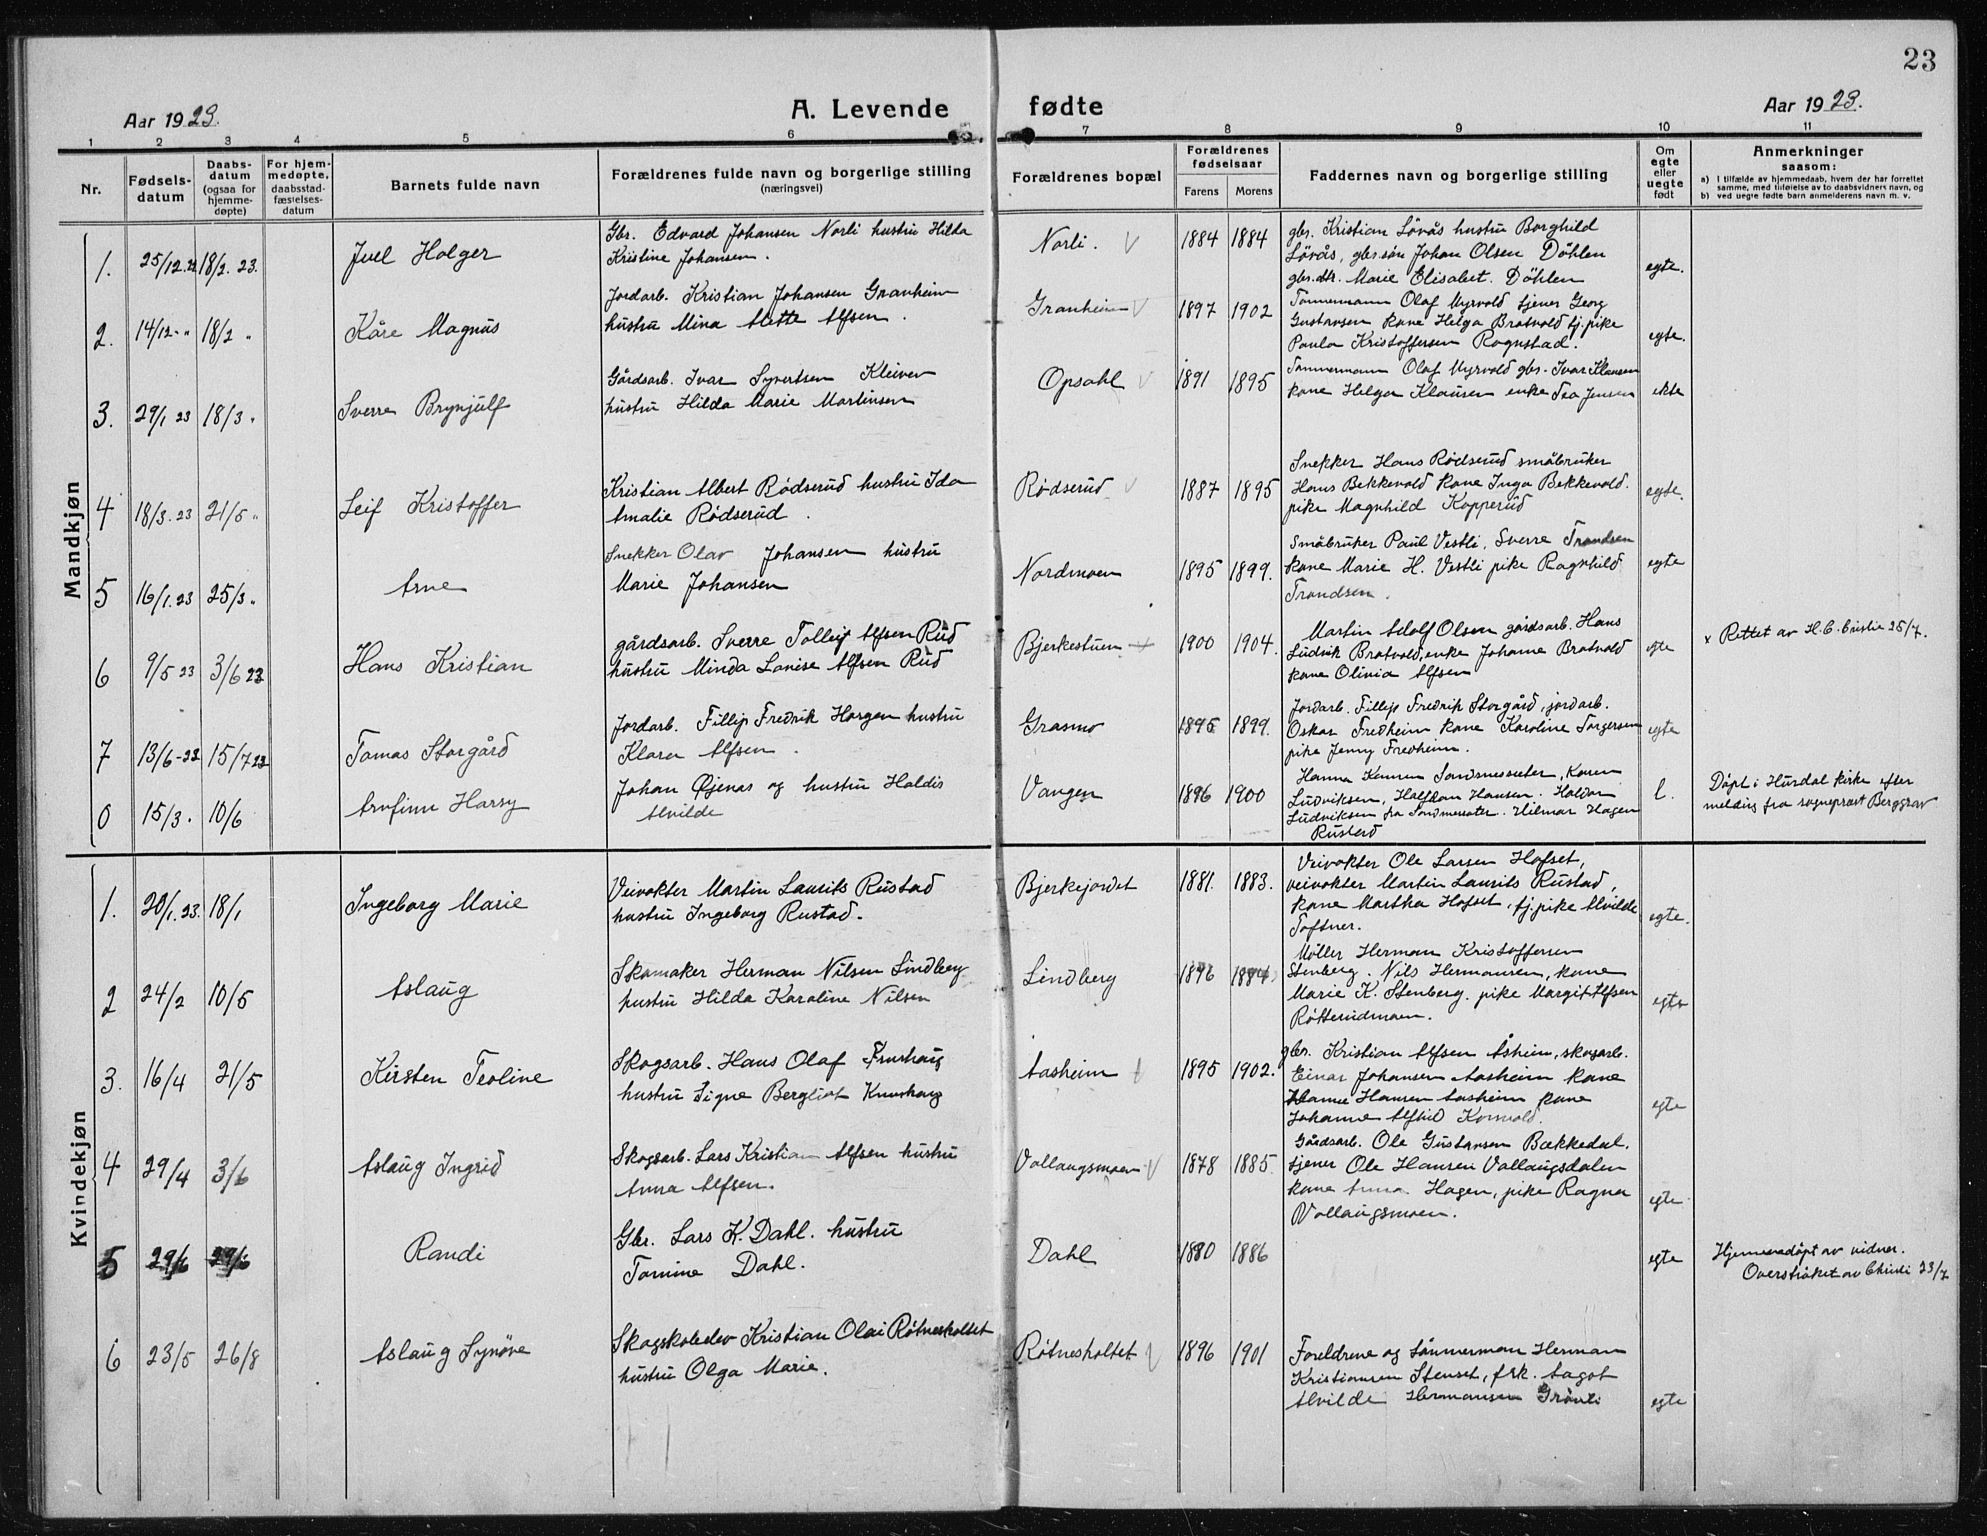 23
Aar 1923.
A. Levende fødte
Aar 1923.
1 2 3 4 5 6 7 8 9 10 11
Nr.
Fødsels-
datum
Daabs-
datum
(ogsaa for
hjemme-
døpte)
For hjem-
medøpte,
daabsstad-
fæstelses-
datum
Barnets fulde navn
Forældrenes fulde navn og borgerlige stilling
(næringsvei)
Forældrenes bopæl
Forældrenes
fødselsaar
Farens Morens
Faddernes navn og borgerlige stilling
Om
egte
eller
uegte
født
Anmerkninger
saasom:
a) I tilfælde av hjemmedaab, hvem der har forrettet
samme, med tilføielse av to daabsvidners navn, og
b) ved uegte fødte barn anmelderens navn m. v.
Mandkjøn
1. 25/12.22 18/2. 23. Juel Holger
Gbr. Edvard Johansen Norli hustru Hilda
Kristine Johansen.
Norli. 1884 1884
gbr. Kristian Lövås hustru Borghild
Lövås, gbr.sön Johan Olsen Döhlen
gbr.dtr. Marie Elisabet Döhlen
egte.
2. 14/12 - " 18/2 " Kåre Magnus
Jordarb. Kristian Johansen Granheim
hustru Mina Alette Alfsen.
Granheim 1897 1902
Tömmermann Olaf Myrvold tjener Georg
Gustavsen kone Helga Bratvold tj. pike
Paula Kristoffersen Rognstad.
egte.
3. 29/1 23 18/3 " Sverre Brynjulf
Gårdsarb. Ivar Syvertsen Kleiven
hustru Hilda Marie Martinsen
Opsahl 1891 1895
Tömmermann Olaf Myrvold gbr. Ivar Klausen
kone Helga Klausen enke Tea Jensen
ekte
4 18/3. 23 21/5 " Leif Kristoffer
Kristian Albert Rödserud hustru Ida
Amalie Rødserud.
Rødserud 1887 1895
Snekker Hans Rødserud småbruker
Hans Bekkevold kone Inga Bekkevold.
pike Magnhild Kopperud
egte.
5 16/1. 23 25/3 " Arne
Snekker Olav Johansen hustru
Marie Johansen
Nordmoen 1895 1899.
Småbruker Paul Vestli, Sverre Trondsen
kone Marie H. Vestli pike Ragnhild
Trondsen.
egte
6 9/5 23 3/6 23 Hans Kristian
gårdsarb. Sverre Tollef Alfsen Rud
hustru Minda Lovise Alfsen Rud
Bjerkestuen 1900 1904.
Martin Adolf Olsen gårdsarb. Hans
Ludvik Bratvold, enke Johanne Bratvold
kone Olivia Alfsen
egte
x Rettet av H.C. Cristie 25/7.
7 13/6-23 15/7 23 Tomas Storgård
Jordarb. Fillip Fredrik Horgen hustru
Klara Alfsen.
Grasmo 1895 1899.
Jordarb. Fillip Fredrik Storgård, jordarb.
Oskar Fredheim kone Karoline Torgersen
pike Jenny Fredheim.
egte
0 15/3. 10/6 Arnfinn Harry
Johan Øjenas og hustru Haldis
Alvilde
Vangen 1896 1900
Hanna Sandmosseter, Karen
Ludviksen, Halfdan Hansen. Haldor
Ludviksen fra Sandmosseter. Hilmar Hagen
Rustad
l.
Døpt i Hurdal kirke efter
melding fra sogneprest Berggrav
Kvindekjøn
1. 20/1. 23. 18/1 Ingeborg Marie
Veivokter Martin Laurits Rustad
hustru Ingeborg Rustad.
Bjerkejordet 1881. 1883.
Veivokter Ole Larsen Hofset,
veivokter Martin Laurits Rustad,
kone Martha Hofset, tj. pike Alvilde
Toftner.
egte.
2 24/2 10/5 Aslaug
Skomaker Herman Nilsen Lindberg
hustru Hilda Karoline Nilsen
Lindberg 1884
Möller Herman Kristoffersen
Stenberg. Nils Hermansen, kone
Marie K. Stenberg. pike Margit Alfsen
Røtterudmoen.
egte
3. 16/4 21/5 Kirsten Teoline
Skogsarb. Hans Olaf
hustru Signe Bergliot Knurhaug
Aasheim 1895 1902.
gbr. Kristian Alfsen Åsheim, skogarb.
Einar Johansen Aasheim kone
Hanna Hansen Aasheim kone
Johanne Alfhild
egte
4 29/4 3/6 Aslaug Ingrid
Skogsarb. Lars Kristian Alfsen hustru
Anna Alfsen.
Vollaugsmoen 1878 1885.
Gårdsarb. Ole Gustavsen Bækkedal.
tjener Ole Hansen Vollaugsdalen
kone Anna Hagen, pike Ragna
Vollaugsmoen.
egte
5 29/6 29/6 Randi
Gbr. Lars K. Dahl. hustru
Tomine Dahl.
Dahl 1880 1886
egte
Hjemmedöpt av vidner.
Overströket av Christi 23/7
6 23/5 26/8 Aslaug Synöve
Skogskoleelev Kristian Olai Røtnesholtet
hustru Olga Marie.
Røtnesholtet 1896 1901
Foreldrene og tömmerman Herman
Kristiansen Stenset, frk. Aagot
Alvilde Hermansen Grönli
egte